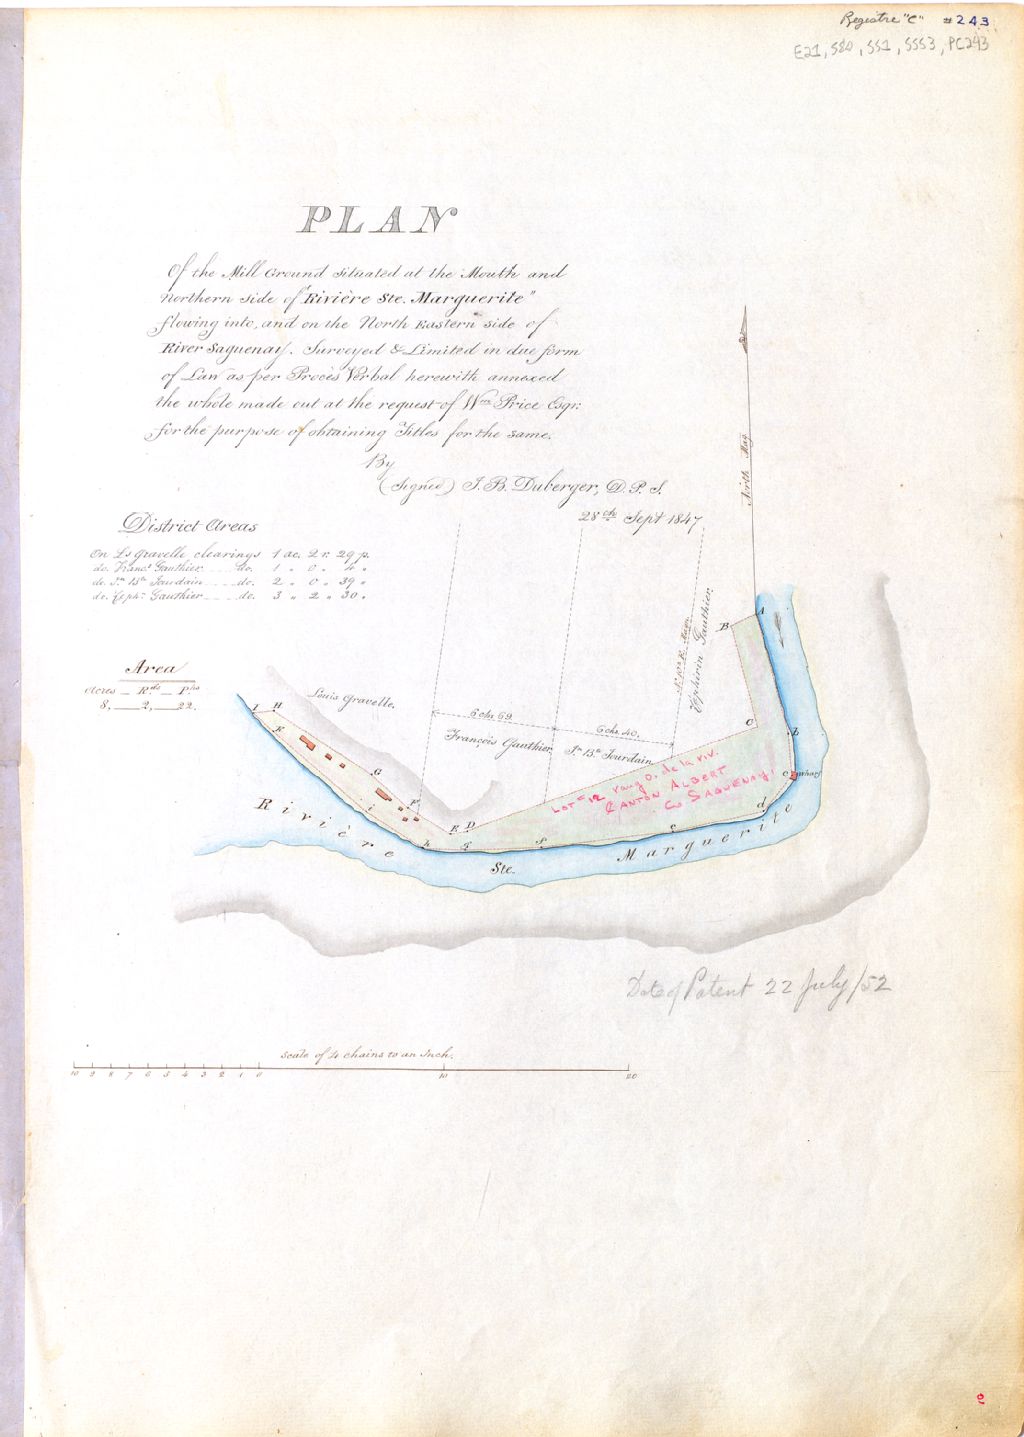 Registre "C" #243
E21, S80, SS1, SSS3, PC243
PLAN
Of the Mill Ground situated at the Mouth and
Northern side of "Rivière Ste. Marguerite"
flowing into, and on the North Eastern side of
River Saguenay. Surveyed & Limited in due form
of Law as per Procès Verbal herewith annexed
the whole made out at the request of Wm Price Esqr.
for the purpose of obtaining Titles for the same.
By
(Signed) J. B. Duberger, D. P. S.
28th Sept 1847
District Areas
On Ls Gravelle clearings 1 ac. 2 r. 29 p.
do. Franc.s Gauthier do. 1 " 0 " 4 "
do. Jn Bte Jourdain do. 2 " 0 " 39 "
do. Zeph.n Gauthier do. 3 " 2 " 30 "
Area
Acres _ R.ds _ P.hs
8, _ 2, _ 22.
North Mag.
A
B
C
Zephirin Gauthier
Louis Gravelle.
6 chs. 69.
6 chs. 40.
François Gauthier
Jn Bte Jourdain
LOT #12 rang O. de la riv.
CANTON ALBERT
Co SAGUENAY
I H
K
G
F
E D
i
h
g
f
e
d
c wharf
b
Rivière
Ste.
Marguerite
Date of Patent 22 July/52
Scale of 4 chains to an Inch.
10 9 8 7 6 5 4 3 2 1 0 10 20